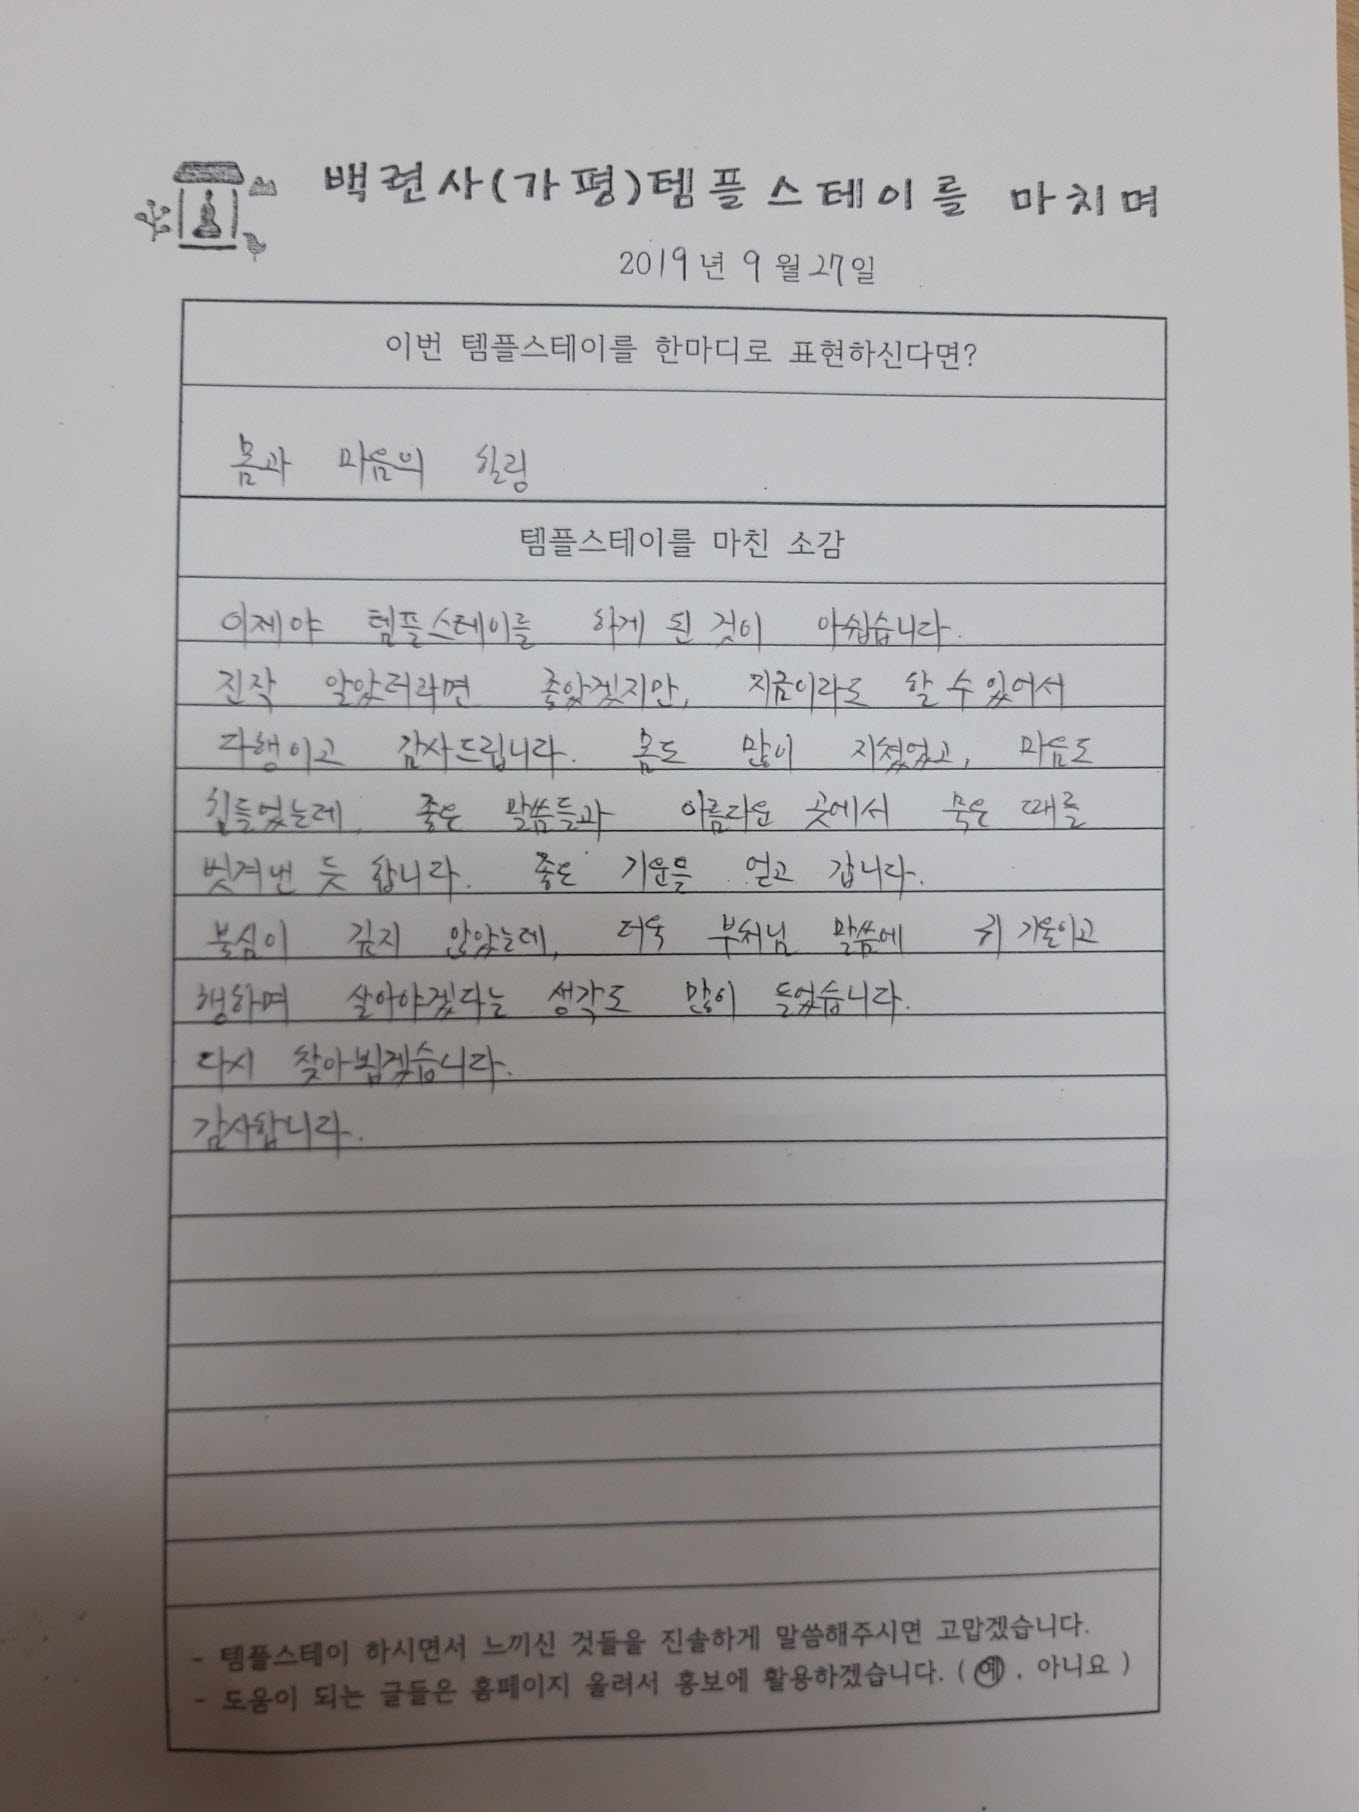 백련사(가평)템플스테이를 마치며
2019년 9월 27일
이번 템플스테이를 한마디로 표현하신다면?
몸과 마음의 힐링
템플스테이를 마친 소감
이제야 템플스테이를 하게 된 것이 아쉽습니다.
진작 알았더라면 좋았겠지만, 지금이라도 할 수 있어서
다행이고 감사드립니다. 몸도 많이 지쳤었고, 마음도
힘들었는데, 좋은 말씀들과 아름다운 곳에서 묵은 때를
벗겨낸 듯 합니다. 좋은 기운을 얻고 갑니다.
불심이 깊지 않았는데, 더욱 부처님 말씀에 귀 기울이고
행하며 살아야겠다는 생각도 많이 들었습니다.
다시 찾아뵙겠습니다.
감사합니다.
- 템플스테이 하시면서 느끼신 것들을 진솔하게 말씀해주시면 고맙겠습니다.
- 도움이 되는 글들은 홈페이지 올려서 홍보에 활용하겠습니다. ( 예 , 아니요 )